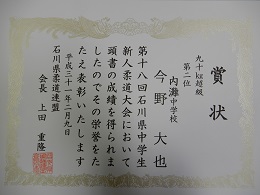 賞状
九十kg超級
第二位
内灘中学校
今野大也
第十八回石川県中学生
新人柔道大会において
頭書の成績を得られま
したのでその栄誉をた
たえ表彰いたします
平成三十一年二月九日
石川県柔道連盟
会長 上田重隆